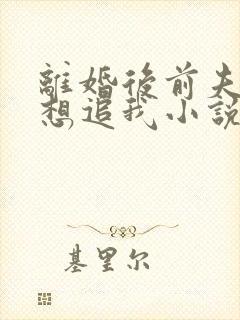 離婚後前夫
想追我小說
基里尔